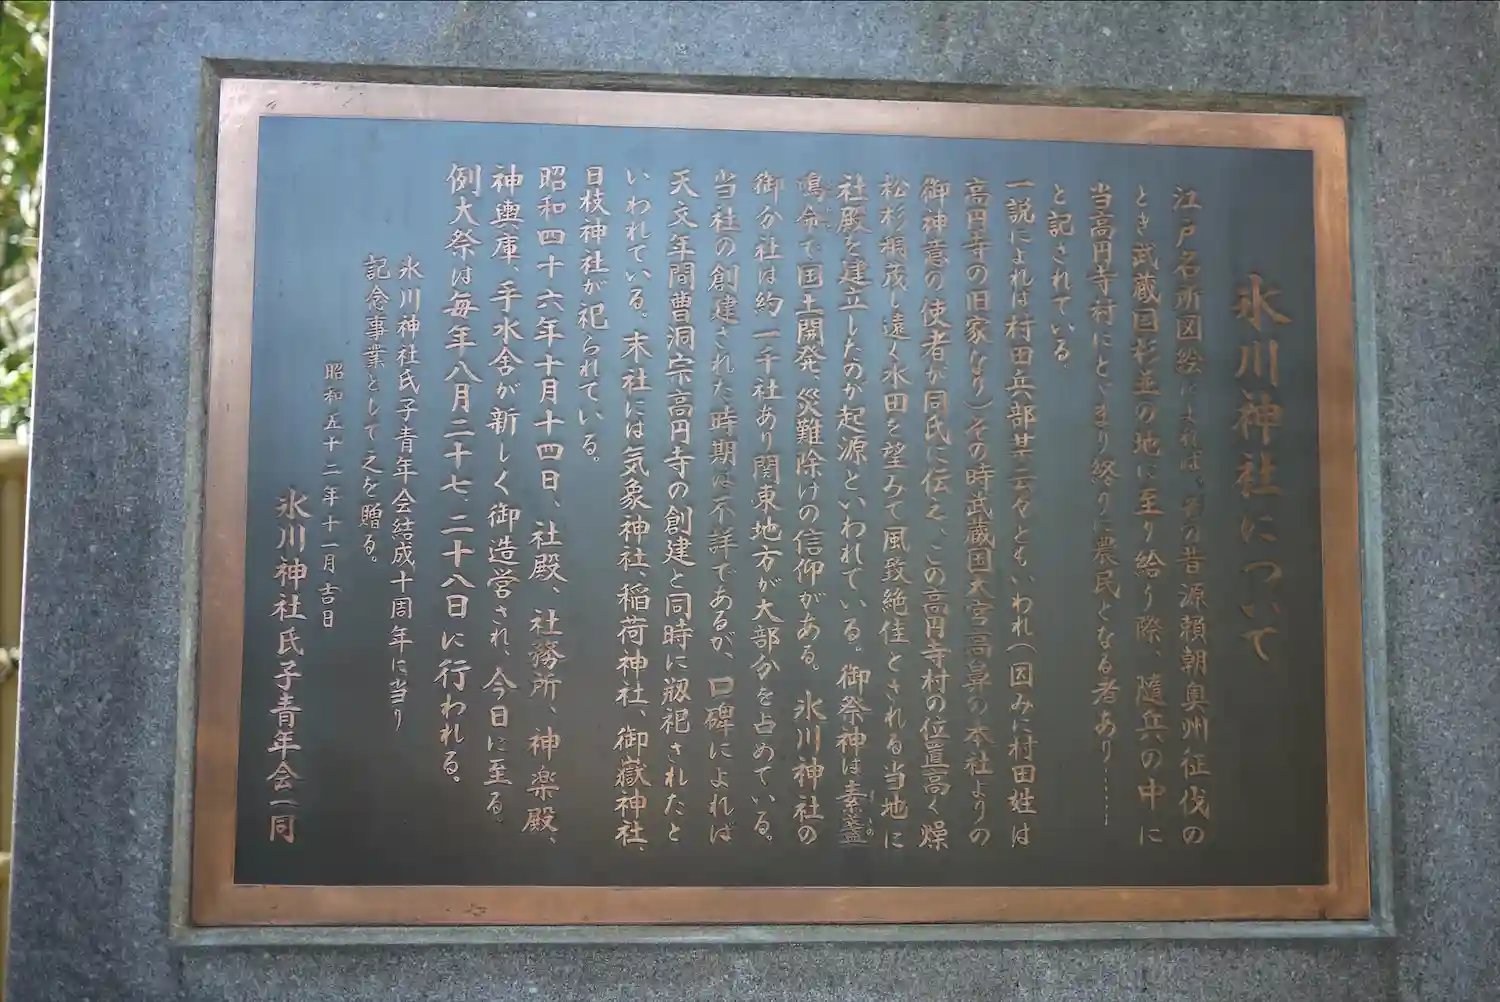 氷川神社について
江戸名所図絵によれば、その昔源頼朝奥州征伐の
とき武蔵国杉並の地に至り給う際、随兵の中に
当高円寺村にとどまり終りに農民となる者あり……
と記されている。
一説によれば村田兵部某云々ともいわれ(因みに村田姓は
高円寺の旧家なり)その時武蔵国大宮高鼻の本社よりの
御神意の使者が同氏に伝え、この高円寺村の位置高く燥
松杉稠茂し遠く水田を望みて風致絶佳とされる当地に
社殿を建立したのが起源といわれている。御祭神は素盞
鳴命で国土開発、災難除けの信仰がある。氷川神社の
御分社は約一千社あり関東地方が大部分を占めている。
当社の創建された時期は不詳であるが、口碑によれば
天文年間曹洞宗高円寺の創建と同時に剏祀されたと
いわれている。末社には気象神社、稲荷神社、御嶽神社、
日枝神社が祀られている。
昭和四十六年十月十四日、社殿、社務所、神楽殿、
神輿庫、手水舎が新しく御造営され、今日に至る。
例大祭は毎年八月二十七、二十八日に行われる。
氷川神社氏子青年会結成十周年に当り
記念事業として之を贈る。
昭和五十二年十一月吉日
氷川神社氏子青年会一同